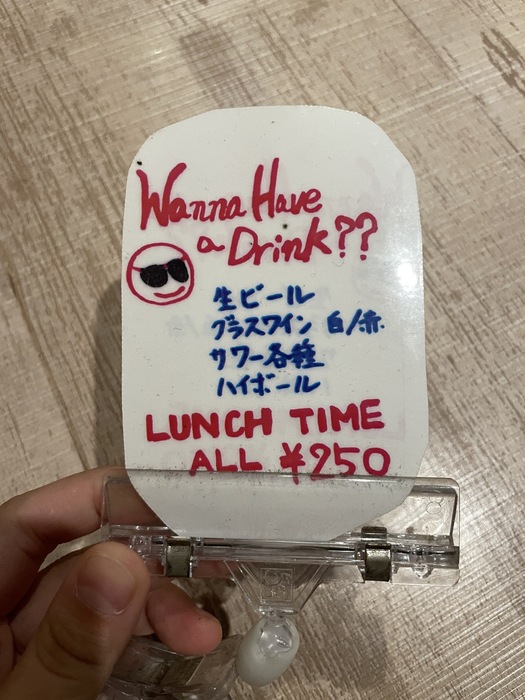 Wanna Have
a Drink??
生ビール
グラスワイン 白/赤
サワー各種
ハイボール
LUNCH TIME
ALL ¥250